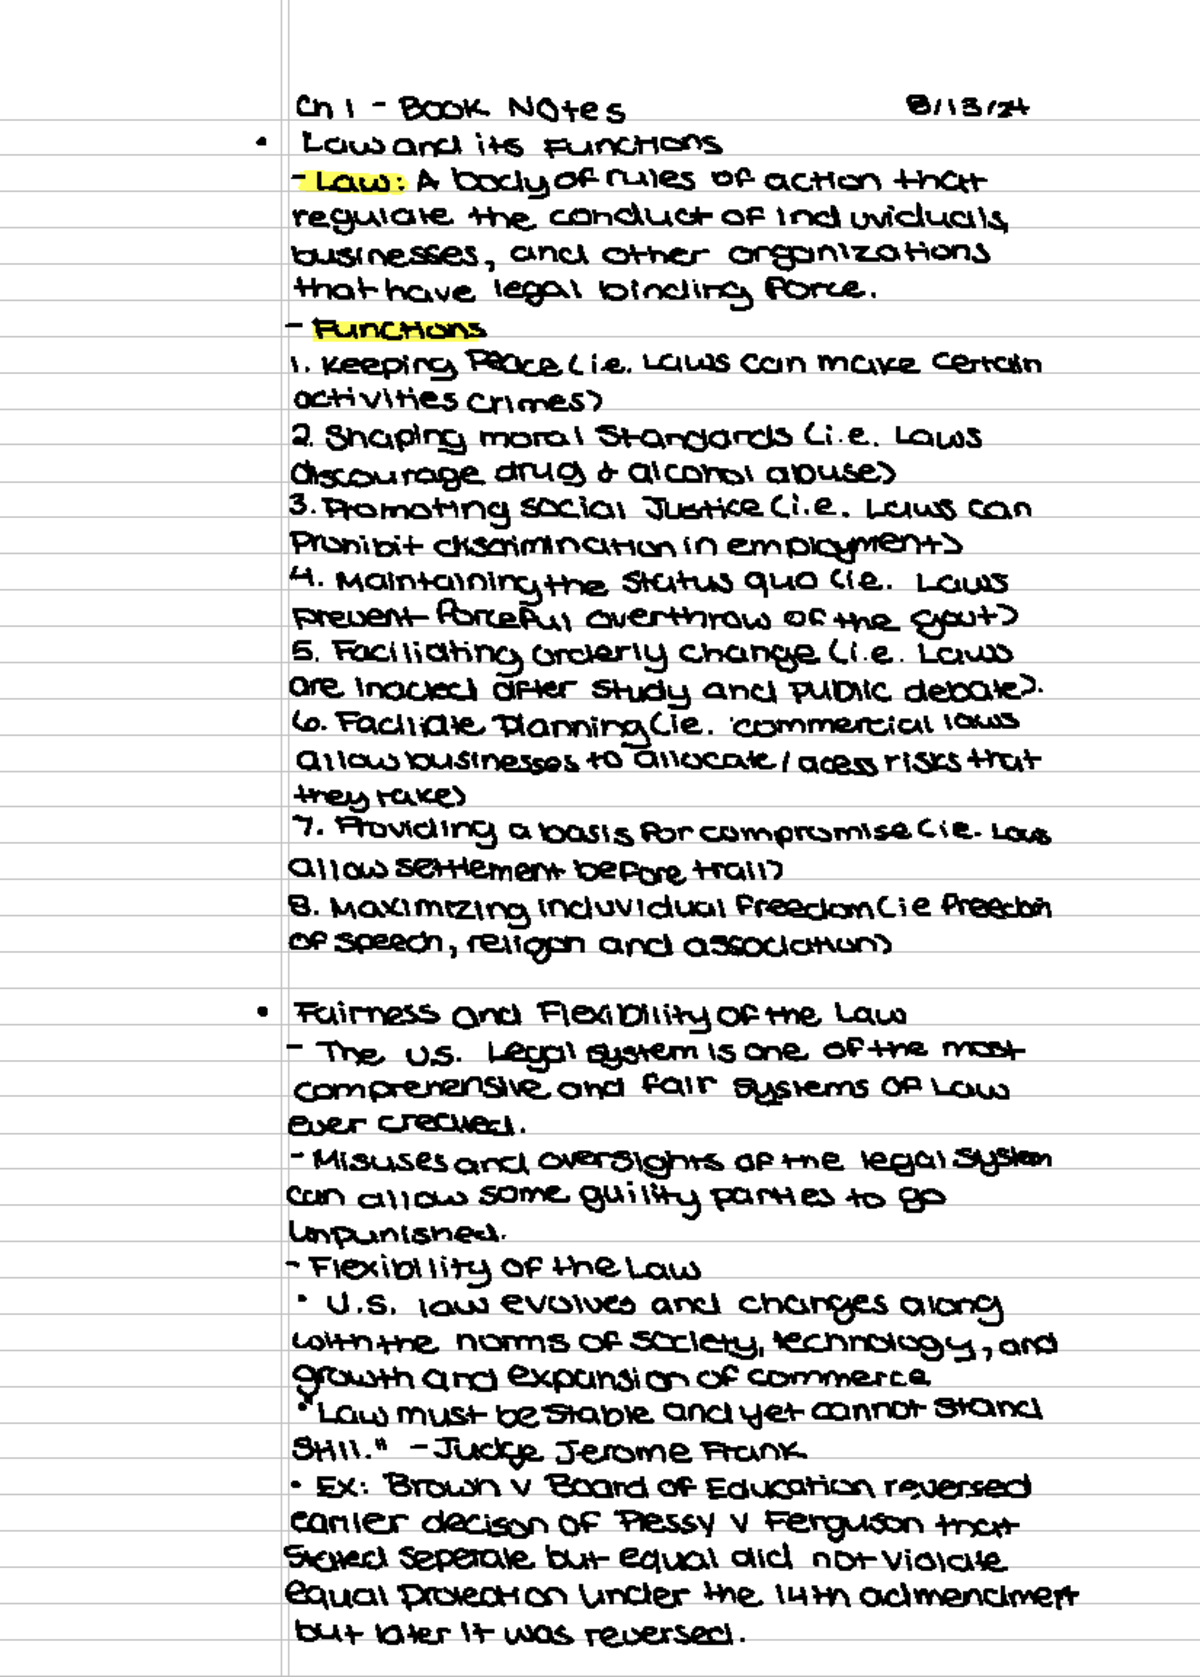 Ch 1 - Book Notes 8/13/24
• Law and its Functions
- Law: A body of rules of action that
regulate the conduct of induviduals,
businesses, and other organizations
that have legal binding force.
- Functions
1. Keeping Peace (i.e. Laws can make certain
activities crimes)
2. Shaping moral Standards (i.e. Laws
discourage drug & alcohol abuse)
3. Promoting social Justice (i.e. Laws can
Prohibit discrimination in employment)
4. Maintaining the Status quo (ie. Laws
prevent forceful overthrow of the govt)
5. Faciliating orderly change (i.e. Laws
are inacted after study and public debate).
6. Faciliate Planning (ie. commercial laws
allow businesses to allocate / acess risks that
they take)
7. Providing a basis for compromise (ie. Laws
allow settlement before trail)
8. Maximizing induvidual freedom (ie freedom
of speech, religon and association)
• Fairness and Flexibility of the Law
- The U.S. Legal system is one of the most
comprehensive and fair systems of Law
ever created.
- Misuses and oversights of the legal system
can allow some guility parties to go
Unpunished.
- Flexibility of the Law
• U.S. law evolves and changes along
with the norms of society, technology, and
growth and expansion of commerce
• "Law must be stable and yet cannot stand
Still." - Judge Jerome Frank
• Ex: Brown v Board of Education reversed
earlier decison of Plessy v Ferguson that
Stated seperate but equal did not violate
equal Protection under the 14th admendment
but later it was reversed.